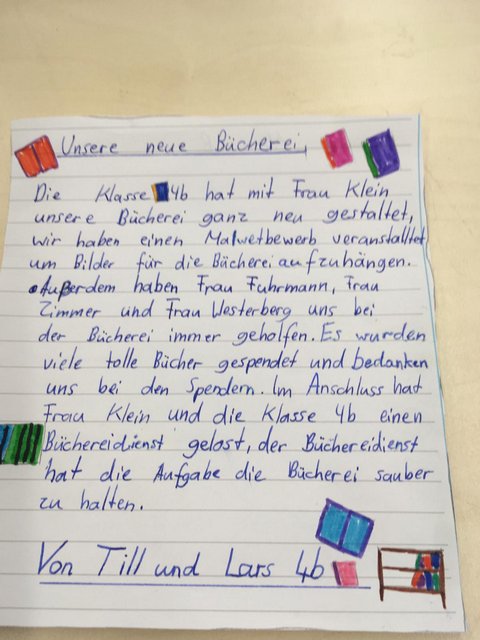 Unsere neue Bücherei
Die Klasse 4b hat mit Frau Klein
unsere Bücherei ganz neu gestaltet,
wir haben einen Malwetbewerb veranstalltet
um Bilder für die Bücherei aufzuhängen.
Außerdem haben Frau Fuhrmann, Frau
Zimmer und Frau Westerberg uns bei
der Bücherei immer geholfen. Es wurden
viele tolle Bücher gespendet und bedanken
uns bei den Spendern. Im Anschluss hat
Frau Klein und die Klasse 4b einen
Büchereidienst gelost, der Büchereidienst
hat die Aufgabe die Bücherei sauber
zu halten.
Von Till und Lars 4b